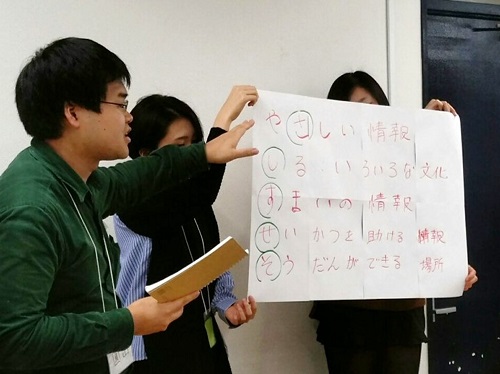 やさしい 情報
しる・いろいろな 文化
すまいの 情報
せいかつを 助ける 情報
そうだんができる 場所